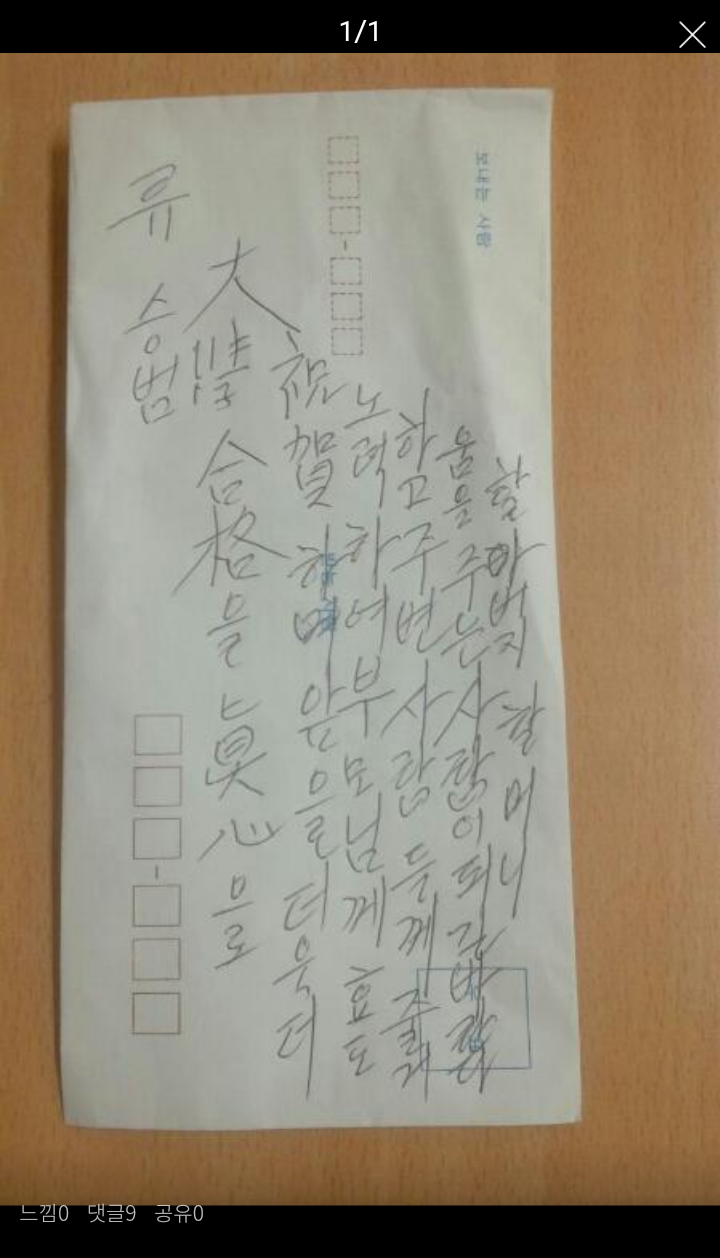 1/1
보내는 사람
류 승범
大學 合格을 眞心으로
祝賀하며 앞을 더욱더
노력하여 부모님께 효도
하고 주변 사람들께 즐거
움을 주는 사람이 되길
할아버지 할머니
느낌0 댓글9 공유0